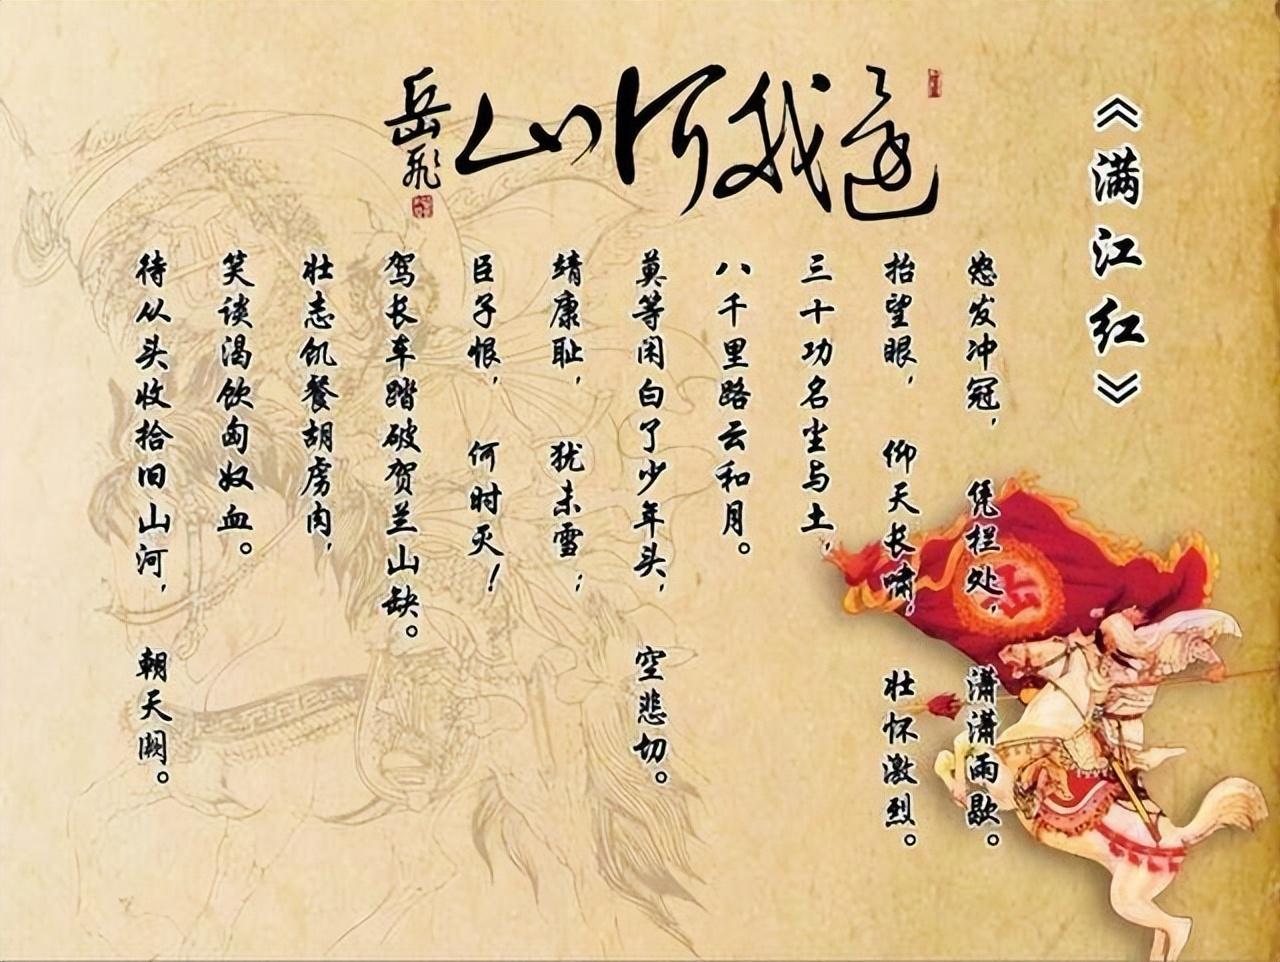 《满江红》
还我河山
岳飞
怒发冲冠， 凭栏处， 潇潇雨歇。
抬望眼， 仰天长啸， 壮怀激烈。
三十功名尘与土，
八千里路云和月。
莫等闲白了少年头， 空悲切。
靖康耻， 犹未雪；
臣子恨， 何时灭！
驾长车踏破贺兰山缺。
壮志饥餐胡虏肉，
笑谈渴饮匈奴血。
待从头收拾旧山河， 朝天阙。
岳